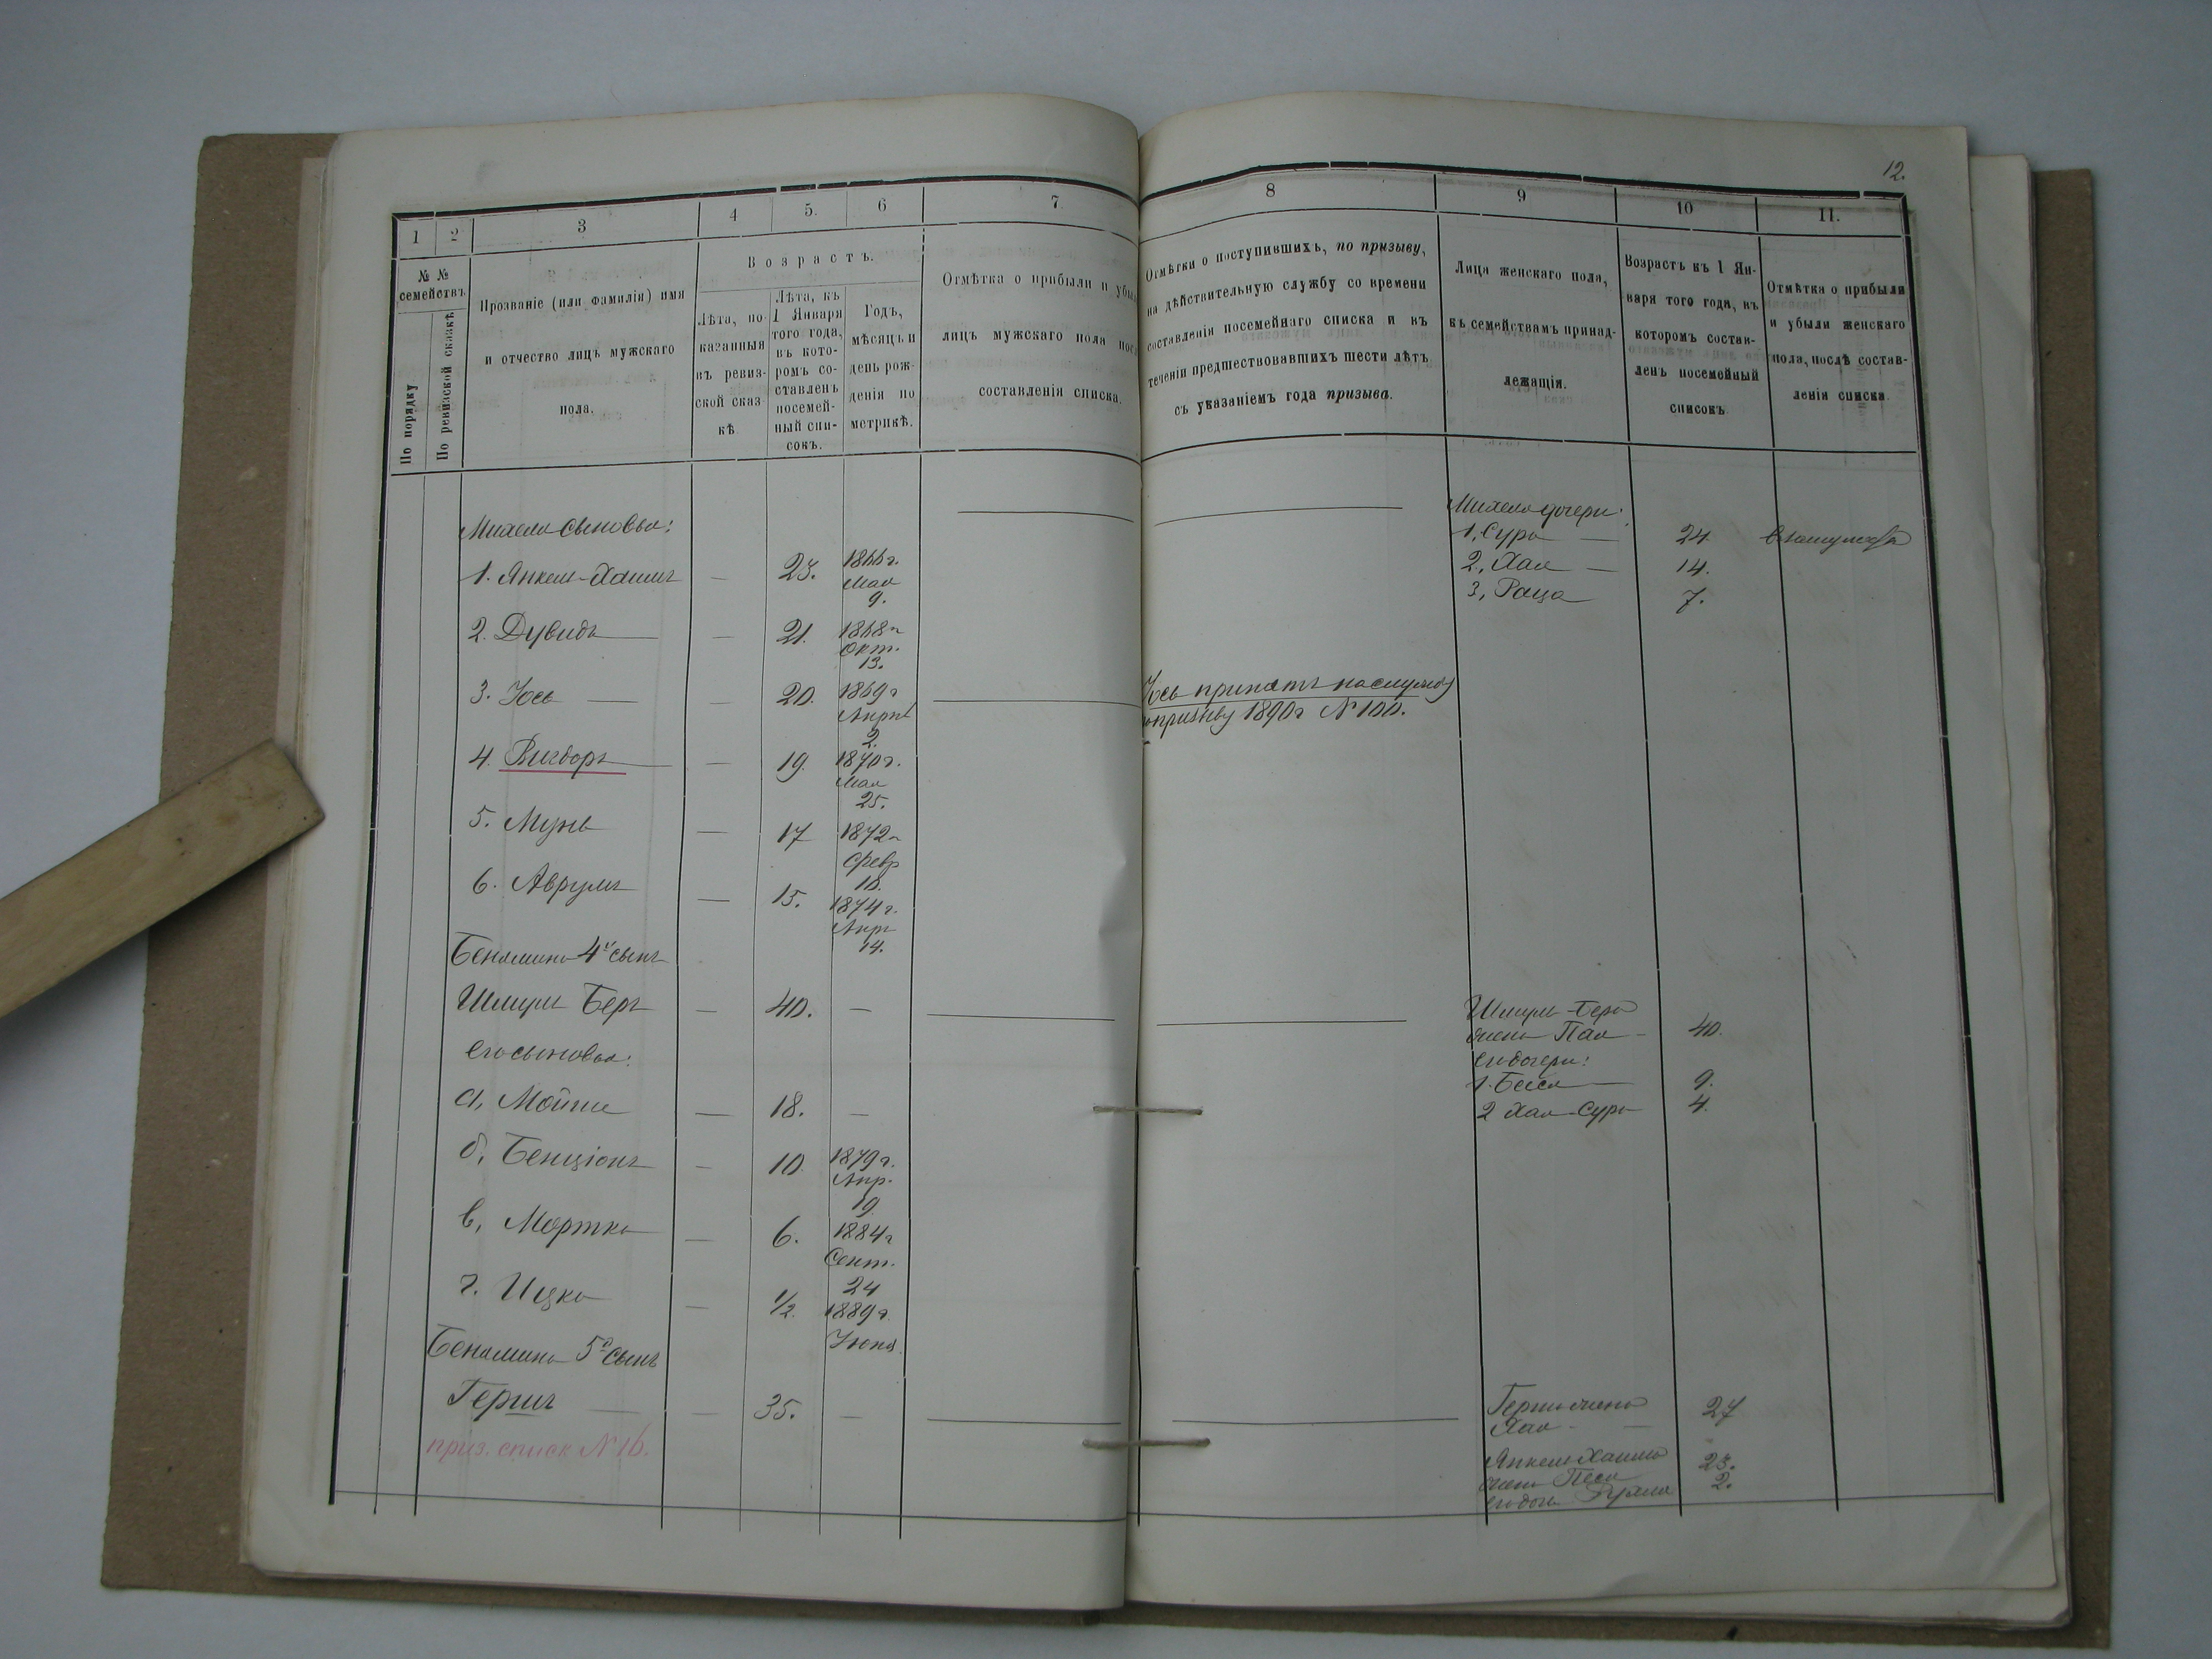 12.
1 2 3 4 5. 6 7
№ № семействъ
По порядку
По ревизской сказкѣ
Прозваніе (или фамилія) имя
и отчество лицъ мужскаго
пола.
Возрастъ.
Лѣта, по-
казанныя
въ ревиз-
ской сказ-
кѣ
Лѣта, къ
1 Января
того года,
въ кото-
ромъ со-
ставленъ
посемей-
ный спи-
сокъ.
Годъ,
мѣсяцъ и
день рож-
денія по
метрикѣ.
Отмѣтка о прибыли и убы
лицъ мужскаго пола пос
составленія списка.
8 9 10 11.
Отмѣтки о поступившихъ, по призыву,
на дѣйствительную службу со времени
составленія посемейнаго списка и въ
теченіи предшествовавшихъ шести лѣтъ
съ указаніемъ года призыва.
Лица женскаго пола,
къ семействамъ принад-
лежащія.
Возрастъ къ 1 Ян-
варя того года, въ
которомъ состав-
ленъ посемейный
списокъ
Отмѣтка о прибыли
и убыли женскаго
пола, послѣ состав-
ленія списка.
Михеля сыновья:
1. Янкель-Хаимъ — 23. 1866 г.
Мая
9.
2. Дувидъ — 21. 1868 г
Окт.
13.
3. Іось — 20. 1869 г
Апрѣл
2.
4. Вигдоръ — 19. 1870 г.
Мая
25.
5. Мунь — 17 1872 г
Февр
18.
6. Аврумъ — 15. 1874 г.
Апр
14.
Бенямина 4й сынъ
Шмуль Беръ — 40. —
Его сыновья:
а, Мойше — 18. —
б, Бенціонъ — 10. 1879 г.
Апр.
19.
в, Мортко — 6. 1884 г
Сент.
24
г. Ицко — 1/2. 1889 г.
Іюня
Бенямина 5й сынъ
Гершъ — 35. —
приз. список № 16.
Іось принятъ на службу
по призыву 1890 г № 100.
Михеля дочери:
1, Сура — 24. Взамужств
2, Хая — 14.
3, Раца 7.
Шмуль-Бера
жена Пая — 40.
его дочери:
1. Бейла — 9.
2 Хая-Сура 4.
Герша жена 27
Хая —
Янкеля Хаима 23.
жена Песя 2.
его дочь